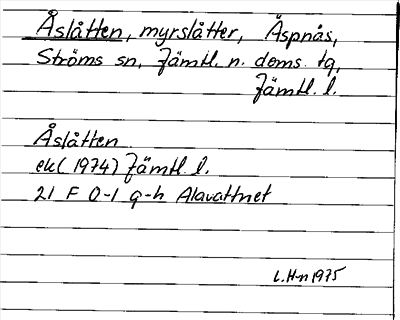 Åslåtten, myrslåtter, Äspnäs,
Ströms sn, Jämtl. n. doms. tg,
Jämtl. l.
Åslåtten
ek (1974) Jämtl. l.
21 F 0-1 g-h Alavattnet
L.H-n 1975